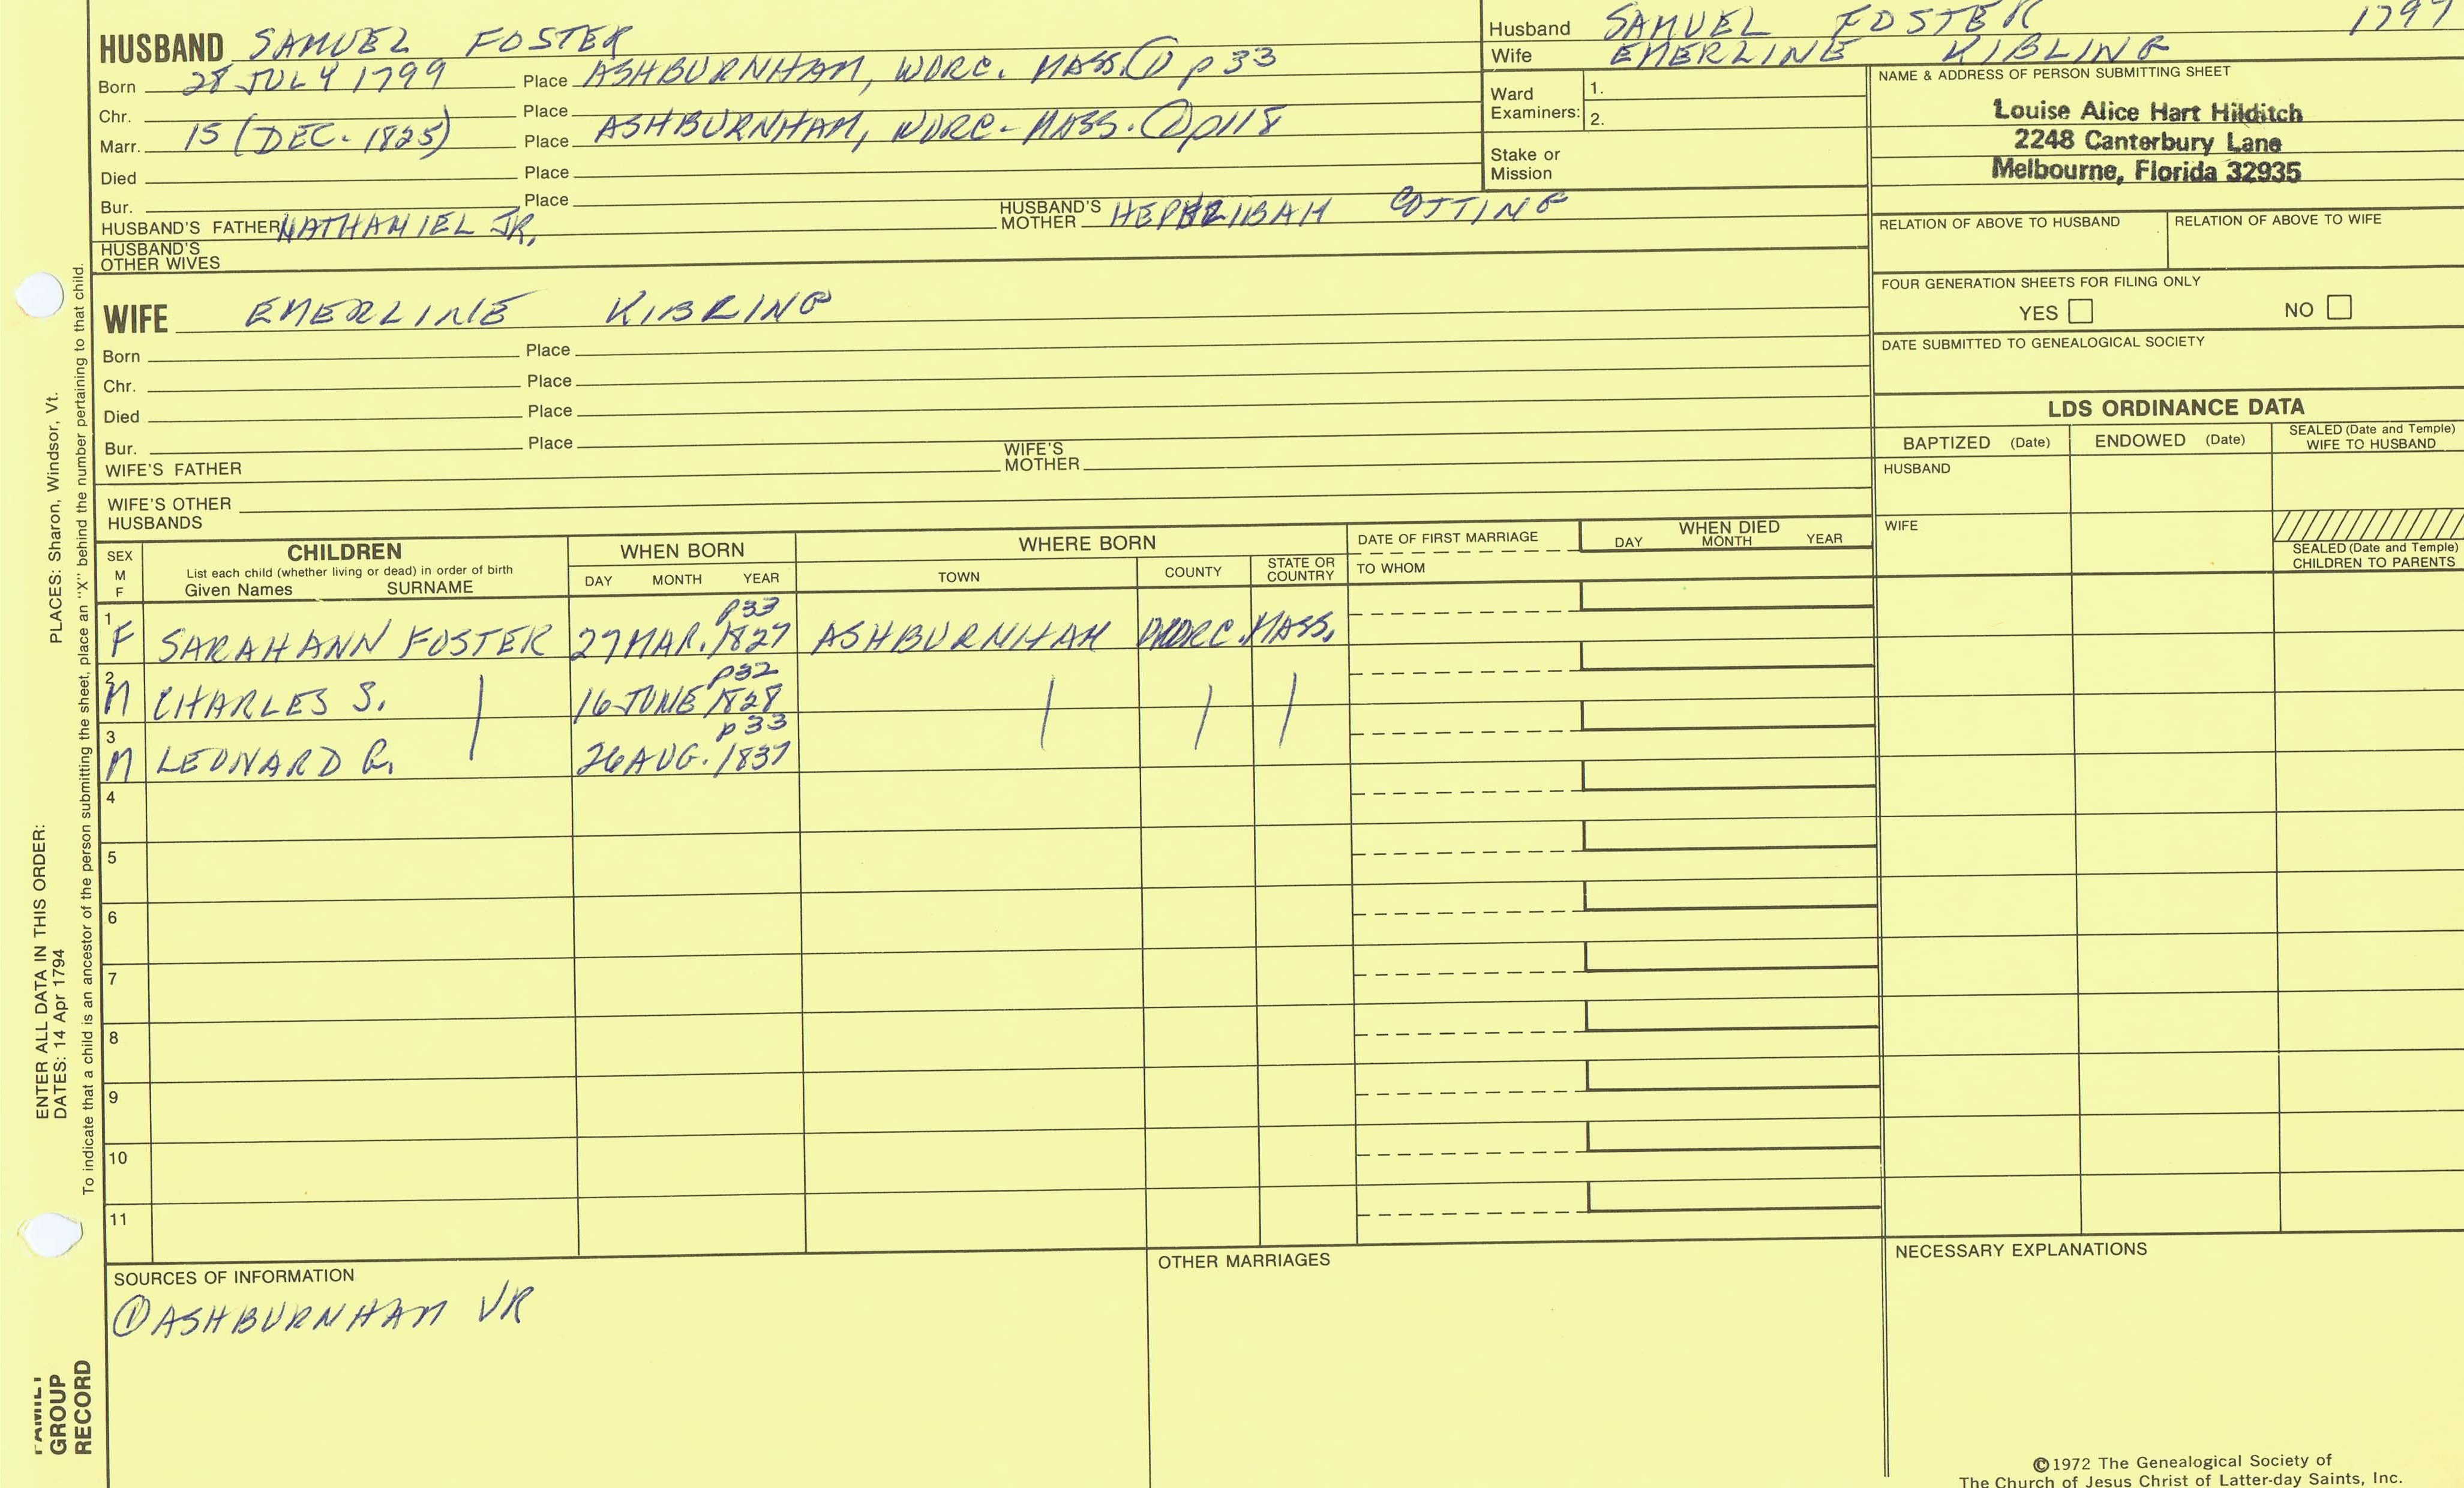 HUSBAND SAMUEL FOSTER
Born 28 JULY 1799 Place ASHBURNHAM, WORC. MASS. ① p 33
Chr. Place
Marr. 15 (DEC. 1825) Place ASHBURNHAM, WORC. MASS. ① p118
Died Place
Bur. Place
HUSBAND'S FATHER NATHANIEL JR. HUSBAND'S MOTHER HEPHZIBAH COTTING
HUSBAND'S OTHER WIVES
WIFE EMERLINE KIBLING
Born Place
Chr. Place
Died Place
Bur. Place
WIFE'S FATHER WIFE'S MOTHER
WIFE'S OTHER HUSBANDS
Husband SAMUEL FOSTER 1799
Wife EMERLINE KIBLING
Ward Examiners: 1.
2.
Stake or Mission
NAME & ADDRESS OF PERSON SUBMITTING SHEET
Louise Alice Hart Hilditch
2248 Canterbury Lane
Melbourne, Florida 32935
RELATION OF ABOVE TO HUSBAND RELATION OF ABOVE TO WIFE
FOUR GENERATION SHEETS FOR FILING ONLY
YES NO
DATE SUBMITTED TO GENEALOGICAL SOCIETY
LDS ORDINANCE DATA
BAPTIZED (Date) ENDOWED (Date) SEALED (Date and Temple) WIFE TO HUSBAND
HUSBAND
WIFE
SEALED (Date and Temple) CHILDREN TO PARENTS
SEX M F
CHILDREN
List each child (whether living or dead) in order of birth
Given Names SURNAME
WHEN BORN
DAY MONTH YEAR
WHERE BORN
TOWN COUNTY STATE OR COUNTRY
DATE OF FIRST MARRIAGE
TO WHOM
WHEN DIED
DAY MONTH YEAR
p33
1 F SARAH ANN FOSTER 27 MAR. 1827 ASHBURNHAM WORC. MASS.
p32
2 M CHARLES S. 16 JUNE 1828
p33
3 M LEONARD G. 26 AUG. 1837
4
5
6
7
8
9
10
11
SOURCES OF INFORMATION
① ASHBURNHAM VR
OTHER MARRIAGES
NECESSARY EXPLANATIONS
©1972 The Genealogical Society of
The Church of Jesus Christ of Latter-day Saints, Inc.
ENTER ALL DATA IN THIS ORDER:
DATES: 14 Apr 1794 PLACES: Sharon, Windsor, Vt.
To indicate that a child is an ancestor of the person submitting the sheet, place an "X" behind the number pertaining to that child.
FAMILY
GROUP
RECORD